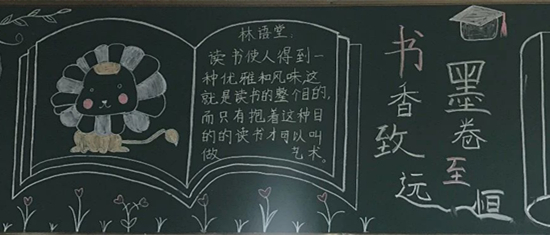 林语堂:
读书使人得到一
种优雅和风味,这
就是读书的整个目的,
而只有抱着这种目
的的读书才可以叫
做 艺术。
书香致远
墨卷至恒